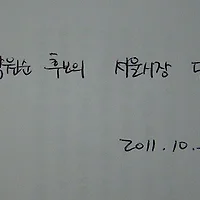 박원순 후보의 서울시장
2011.10.